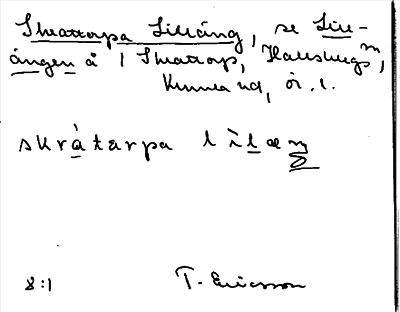 Skrattorpa Lilläng, se Lill-
ängen å 1 Skrattorp, Hallsbergs sn,
Kumla hd, ör. l.
skràtarpa lìlæŋ
8:1 T. Ericsson